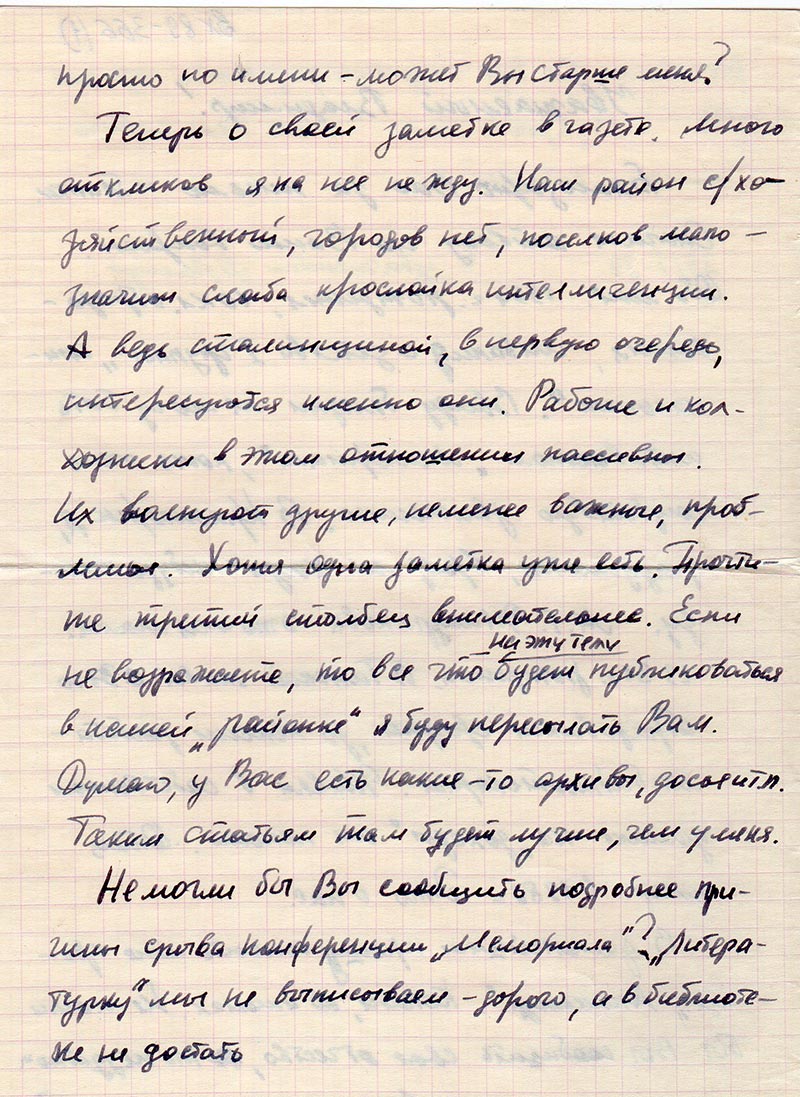 просто по имени – может Вы старше меня?
Теперь о своей заметке в газете. Много
откликов я на нее не жду. Наш район с/хо-
зяйственный, городов нет, поселков мало –
значит слаба прослойка интеллигенции.
А ведь сталинщиной, в первую очередь,
интересуются именно они. Рабочие и кол-
хозники в этом отношении пассивны.
Их волнуют другие, не менее важные, проб-
лемы. Хотя одна заметка уже есть. Прочти-
те третий столбец внимательнее. Если
на эту тему
не возражаете, то все что будет публиковаться
в нашей „районке“ я буду пересылать Вам.
Думаю, у Вас есть какие-то архивы, досье и т.п.
Таким статьям там будет лучше, чем у меня.
Не могли бы Вы сообщить подробнее при-
чины срыва конференции „Мемориала“? „Литера-
турку“ мы не выписываем – дорого, а в библиоте-
ке не достать